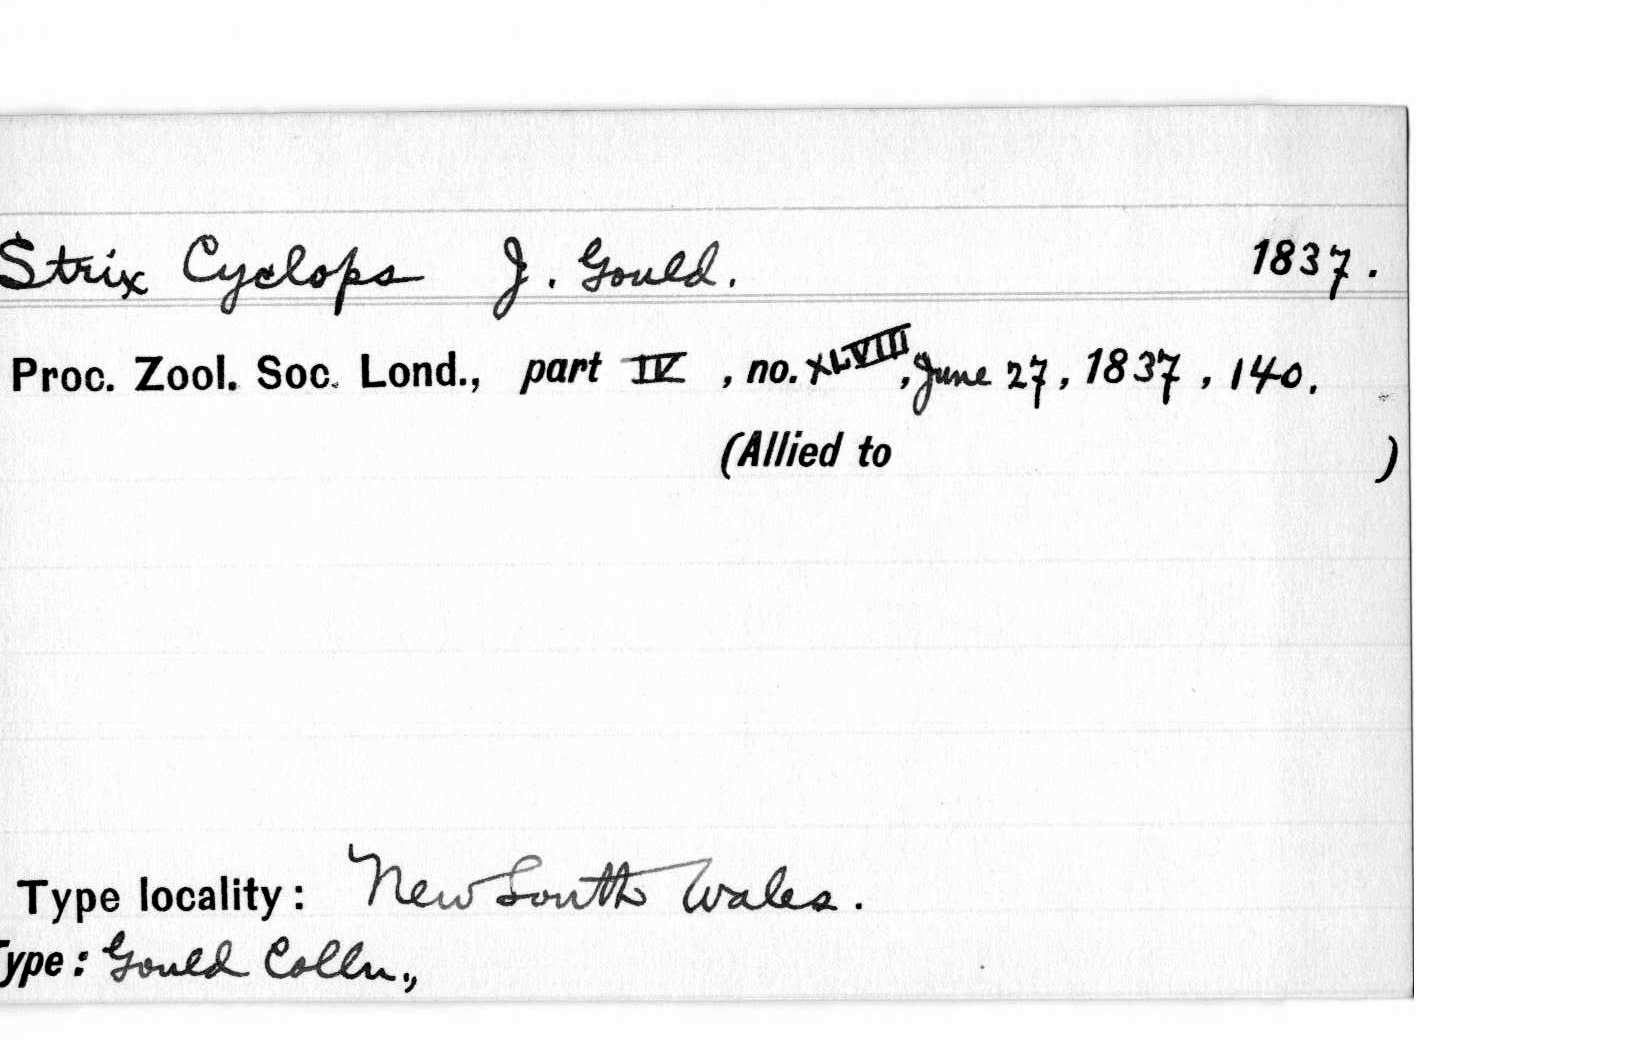 Strix Cyclops J. Gould. 1837.
Proc. Zool. Soc. Lond., part IV, no. XLVIII, June 27, 1837, 140.
(Allied to )
Type locality: New South Wales.
Type: Gould Colln.,